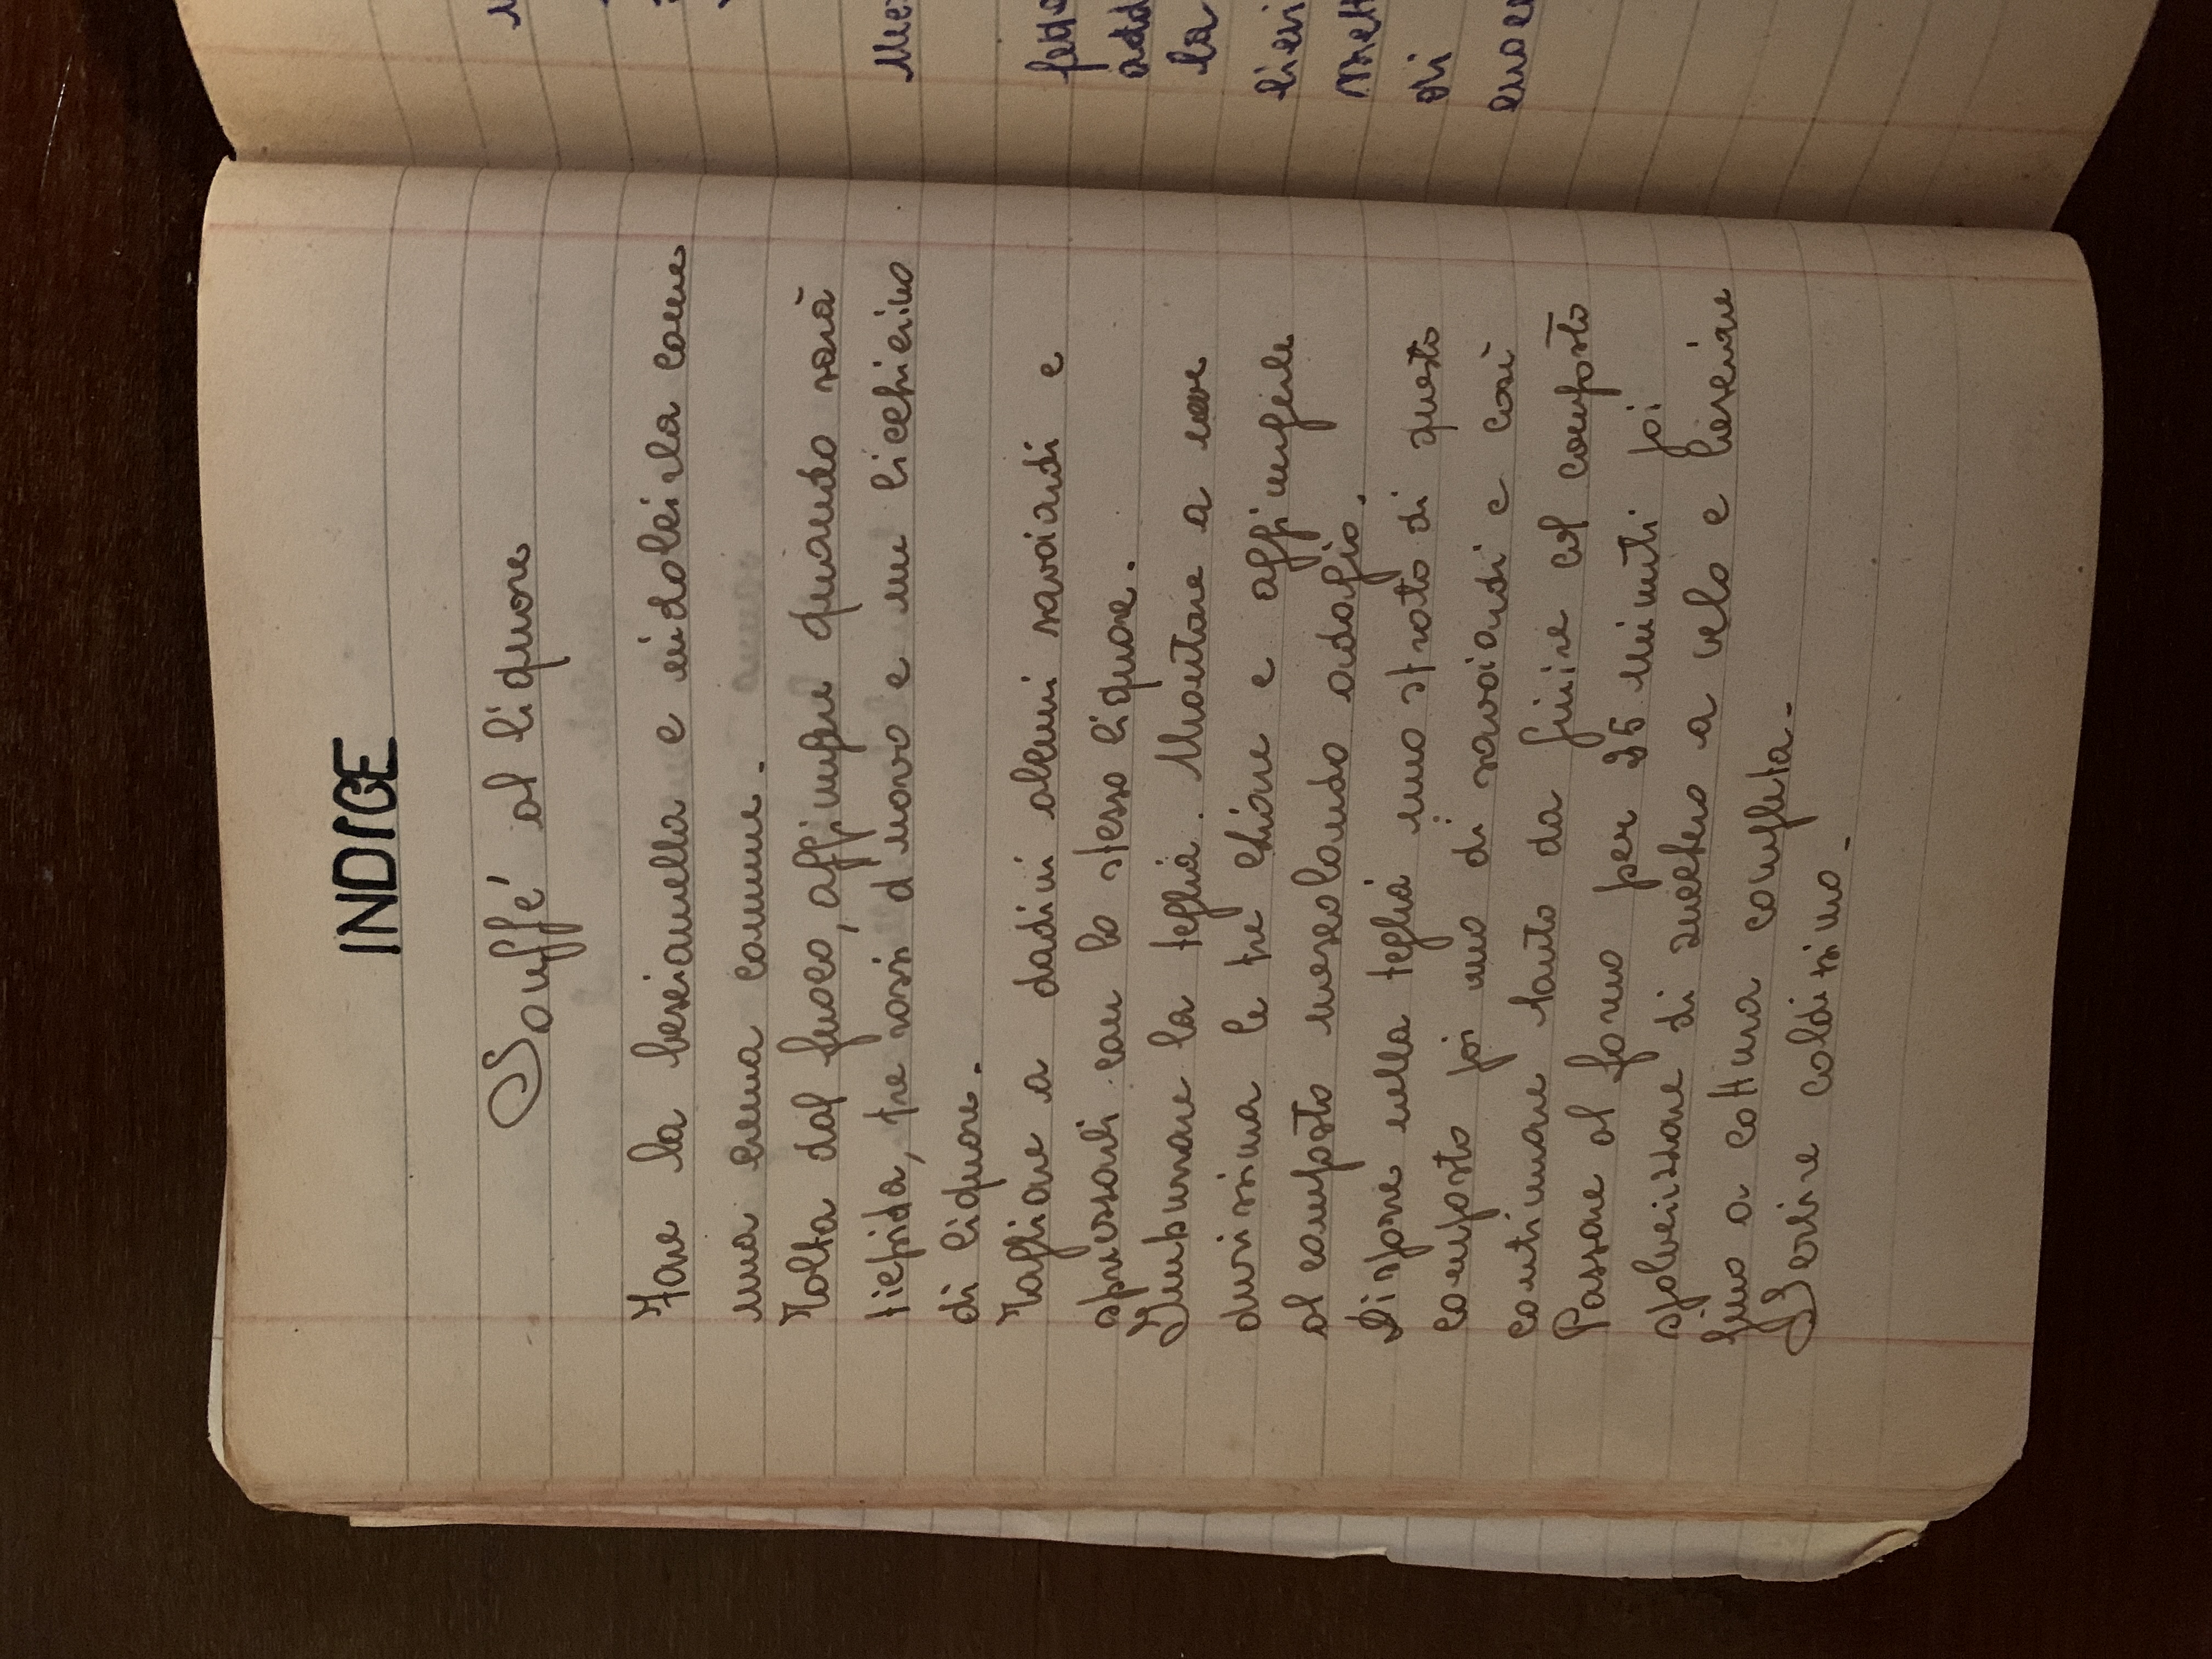 INDICE
Souffe' al liquore
Fare la besciamella e indolcirla come
una crema comune.
Tolta dal fuoco, aggiungere quando sarà
tiepida, tre rossi d'uovo e un bicchierino
di liquore.
Tagliare a dadini alcuni savoiardi e
spruzzarli con lo stesso liquore.
Imburrare la teglia. Montare a neve
durissima le tre chiare e aggiungerle
al composto mescolando adagio.
Disporre nella teglia uno strato di questo
composto poi uno di savoiardi e così
continuare tanto da finire col composto
Passare al forno per 25 minuti poi
spolverizzare di zucchero a velo e lasciare
fino a cottura completa.
Servire caldissimo.
fett
add
la
di